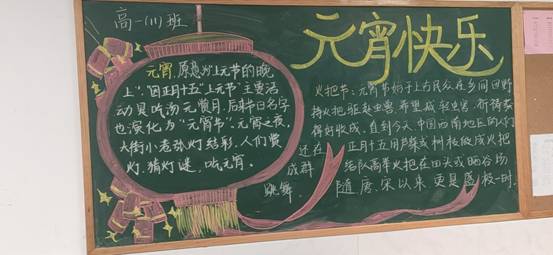 高一(11)班
元宵快乐
元宵,原意为"上元节的晚
上",因正月十五"上元节"主要活
动是吃汤元赏月,后来节日名字
也演化为"元宵节".元宵之夜,
大街小巷张灯结彩,人们赏
灯,猜灯谜,吃元宵。
火把节:元宵节始于上古民众在乡间田野
持火把驱赶虫兽,希望减轻虫害,祈祷获
得好收成。直到今天,中国西南地区的人们
还在正月十五用芦柴或树枝做成火把
成群结队高举火把在田头或晒谷场
跳舞。隋、唐、宋以来,更是盛极一时.